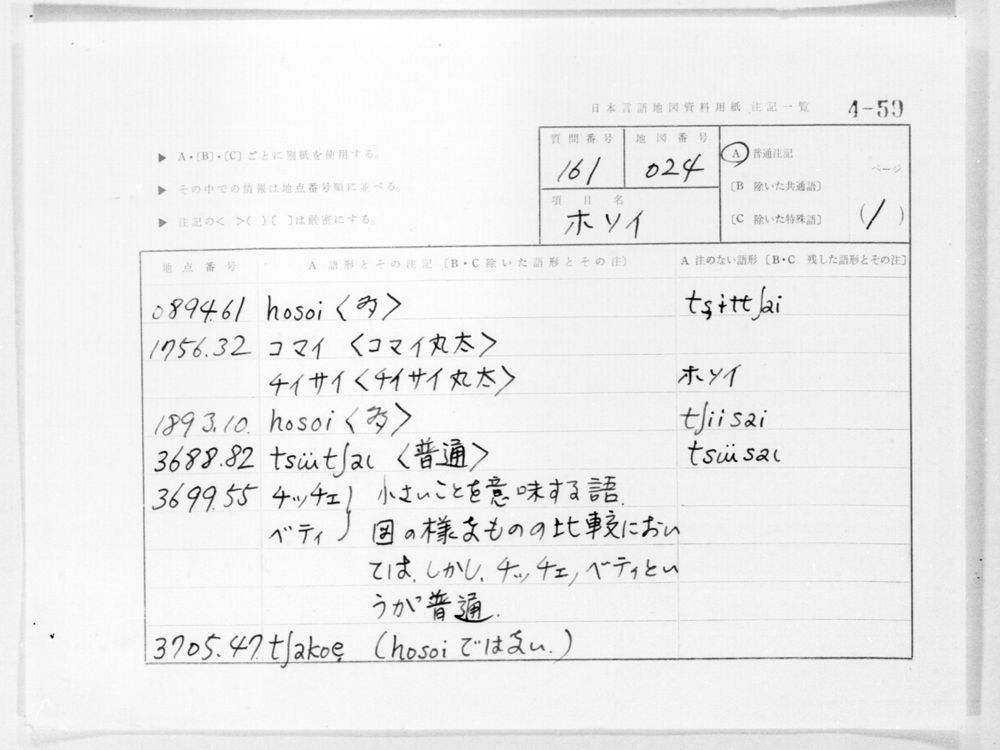 日本言語地図資料用紙 注記一覧 4-59
▶ A・〔B〕・〔C〕ごとに別紙を使用する。
▶ その中での情報は地点番号順に並べる。
▶ 注記の< >( )〔 〕は厳密にする。
質問番号 地図番号
161 024
項目名
ホソイ
A 普通注記
〔B 除いた共通語〕
〔C 除いた特殊語〕
ページ
(1)
地点番号 A 語形とその注記〔B・C 除いた語形とその注〕 A 注のない語形〔B・C 残した語形とその注〕
0894.61 hosoi〈多〉
1756.32 コマイ〈コマイ丸太〉
チイサイ〈チイサイ丸太〉 ホソイ
1893.10. hosoi〈多〉 tʃiisai
3688.82 tsïïtʃaɩ〈普通〉 tsïïsaɩ
3699.55 チッチェ} 小さいことを意味する語.
ベティ 図の様なものの比較におい
ては、しかし、チッチェ, ベティとい
うが普通.
3705.47. tʃakoe̞ (hosoiではない.)